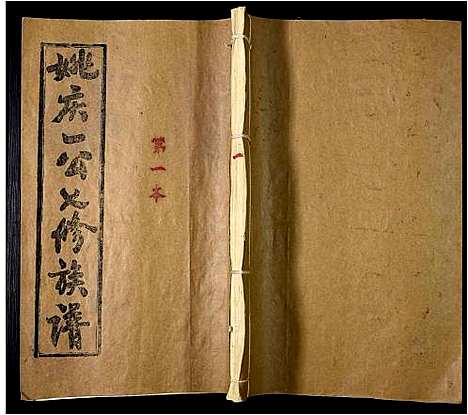 姚庆一公七修族谱
第一本
一